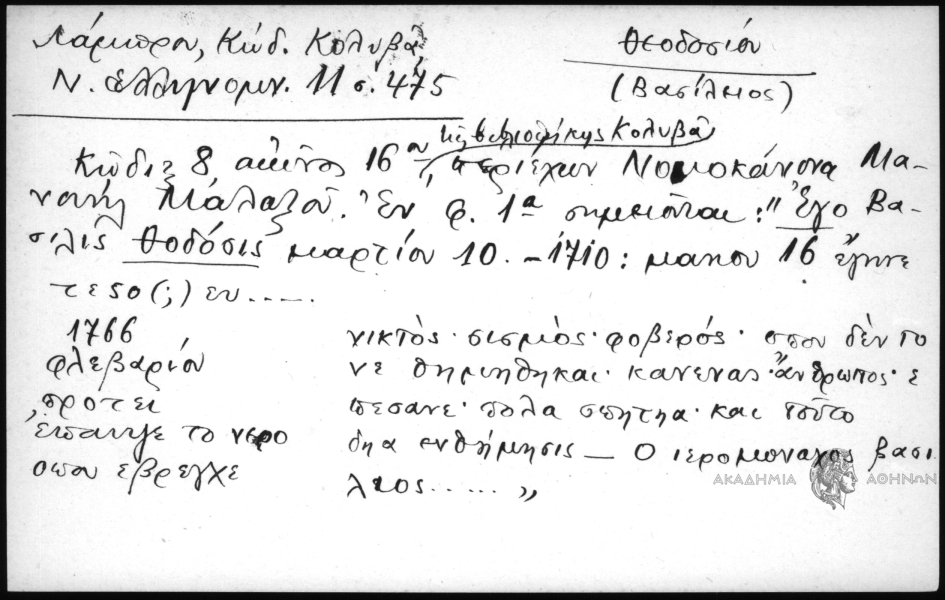 Λάμπρου, Κώδ. Κολυβᾶ
Ν. Ἑλληνομν. 11 σ. 475
Θεοδοσίου
(Βασίλειος)
τῆς βιβλιοθήκης Κολυβᾶ
Κῶδιξ 8, αἰῶνος 16ου, περιέχων Νομοκάνονα Μα-
νουὴλ Μαλαξοῦ. Ἐν φ. 1α σημειοῦται: "Ἐγο Βα-
σιλις Θοδόσις μαρτίου 10. – 1710: μαηου 16 ἔγηνε
τεσο(;) εν.....
1766
φλεβαρίου
προτει
ἐπανιξε το νερο
οπου εβρεγχε
νικτὸς· σισμιὸς· φοβερός· οπου δὲν το
νε θημηθηκαι· κανενας· ἄνθρωπος· ε
πεσανε· πολα σπητηα· και τοῦτο
δηα ενθήμησις — Ο ιερομοναχος βασι
λιος...... "
ΑΚΑΔΗΜΙΑ ΑΘΗΝΩΝ